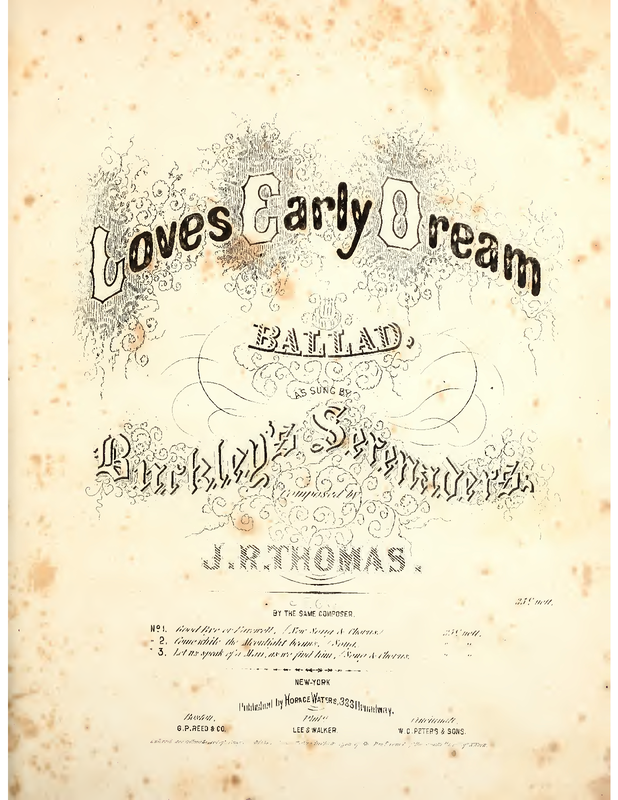 Loves Early Dream
BALLAD,
AS SUNG BY
Buckley's Serenaders.
Composed by
J.R.THOMAS.
25 cts nett.
BY THE SAME COMPOSER.
No 1. Good Bye or Farewell, (New Song & Chorus) 25 cts nett.
" 2. Come while the Moonlight beams, (Song, " "
" 3. Let us speak of a Man, as we find him, (Song & Chorus, " "
NEW-YORK
Published by HORACE WATERS, 333 Broadway.
Boston, Phila Cincinnati.
G.P.REED & CO. LEE & WALKER. W.C.PETERS & SONS.